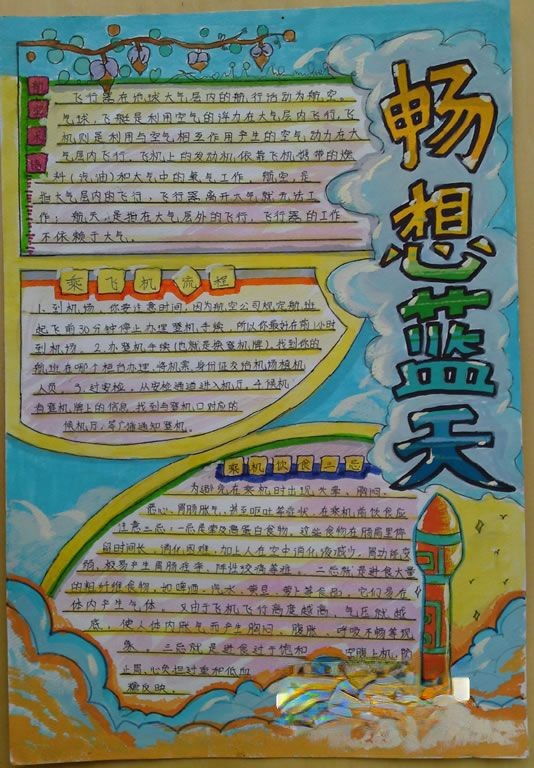 畅想蓝天
航空术语
飞行器在地球大气层内的航行活动为航空。
气球、飞艇是利用空气的浮力在大气层内飞行，飞
机则是利用与空气相互作用产生的空气动力在大
气层内飞行。飞机上的发动机依靠飞机携带的燃
料（汽油）和大气中的氧气工作。航空是
指大气层内的飞行，飞行器离开大气就无法工
作；航天是指在大气层外的飞行，飞行器的工作
不依赖于大气。
乘飞机流程
1.到机场。你要注意时间，因为航空公司规定航班
起飞前30分钟停止办理登机手续，所以你最好在前1小时
到机场。2.办登机手续（也就是换登机牌）。找到你的
航班在哪个柜台办理，将机票、身份证交给机场值机
人员。3.过安检。从安检通道进入机厅。4.候机
有登机牌上的信息，找到与登机口对应的
候机厅，等广播通知登机。
乘机饮食三忌
为避免在乘机时出现头晕、胸闷、
恶心、胃肠胀气，甚至呕吐等症状，在乘机前饮食应
注意三忌：一忌是荤及高蛋白食物。这些食物在肠胃里停
留时间长，消化困难，加上人在空中消化液减少，胃功能变
弱，极易产生胃肠疼痛、阵性绞痛等难。二忌就是进食大量
的粗纤维食物，如啤酒、汽水、黄豆、萝卜等食品，它们易在
体内产生气体。又由于飞机飞行高度越高，气压就越
底，使人体内胀气而产生胸闷、腹胀、呼吸不畅等现
象。三忌就是进食过于饱和 空腹上机，防
止胃、心负担过重和低血
糖反映。